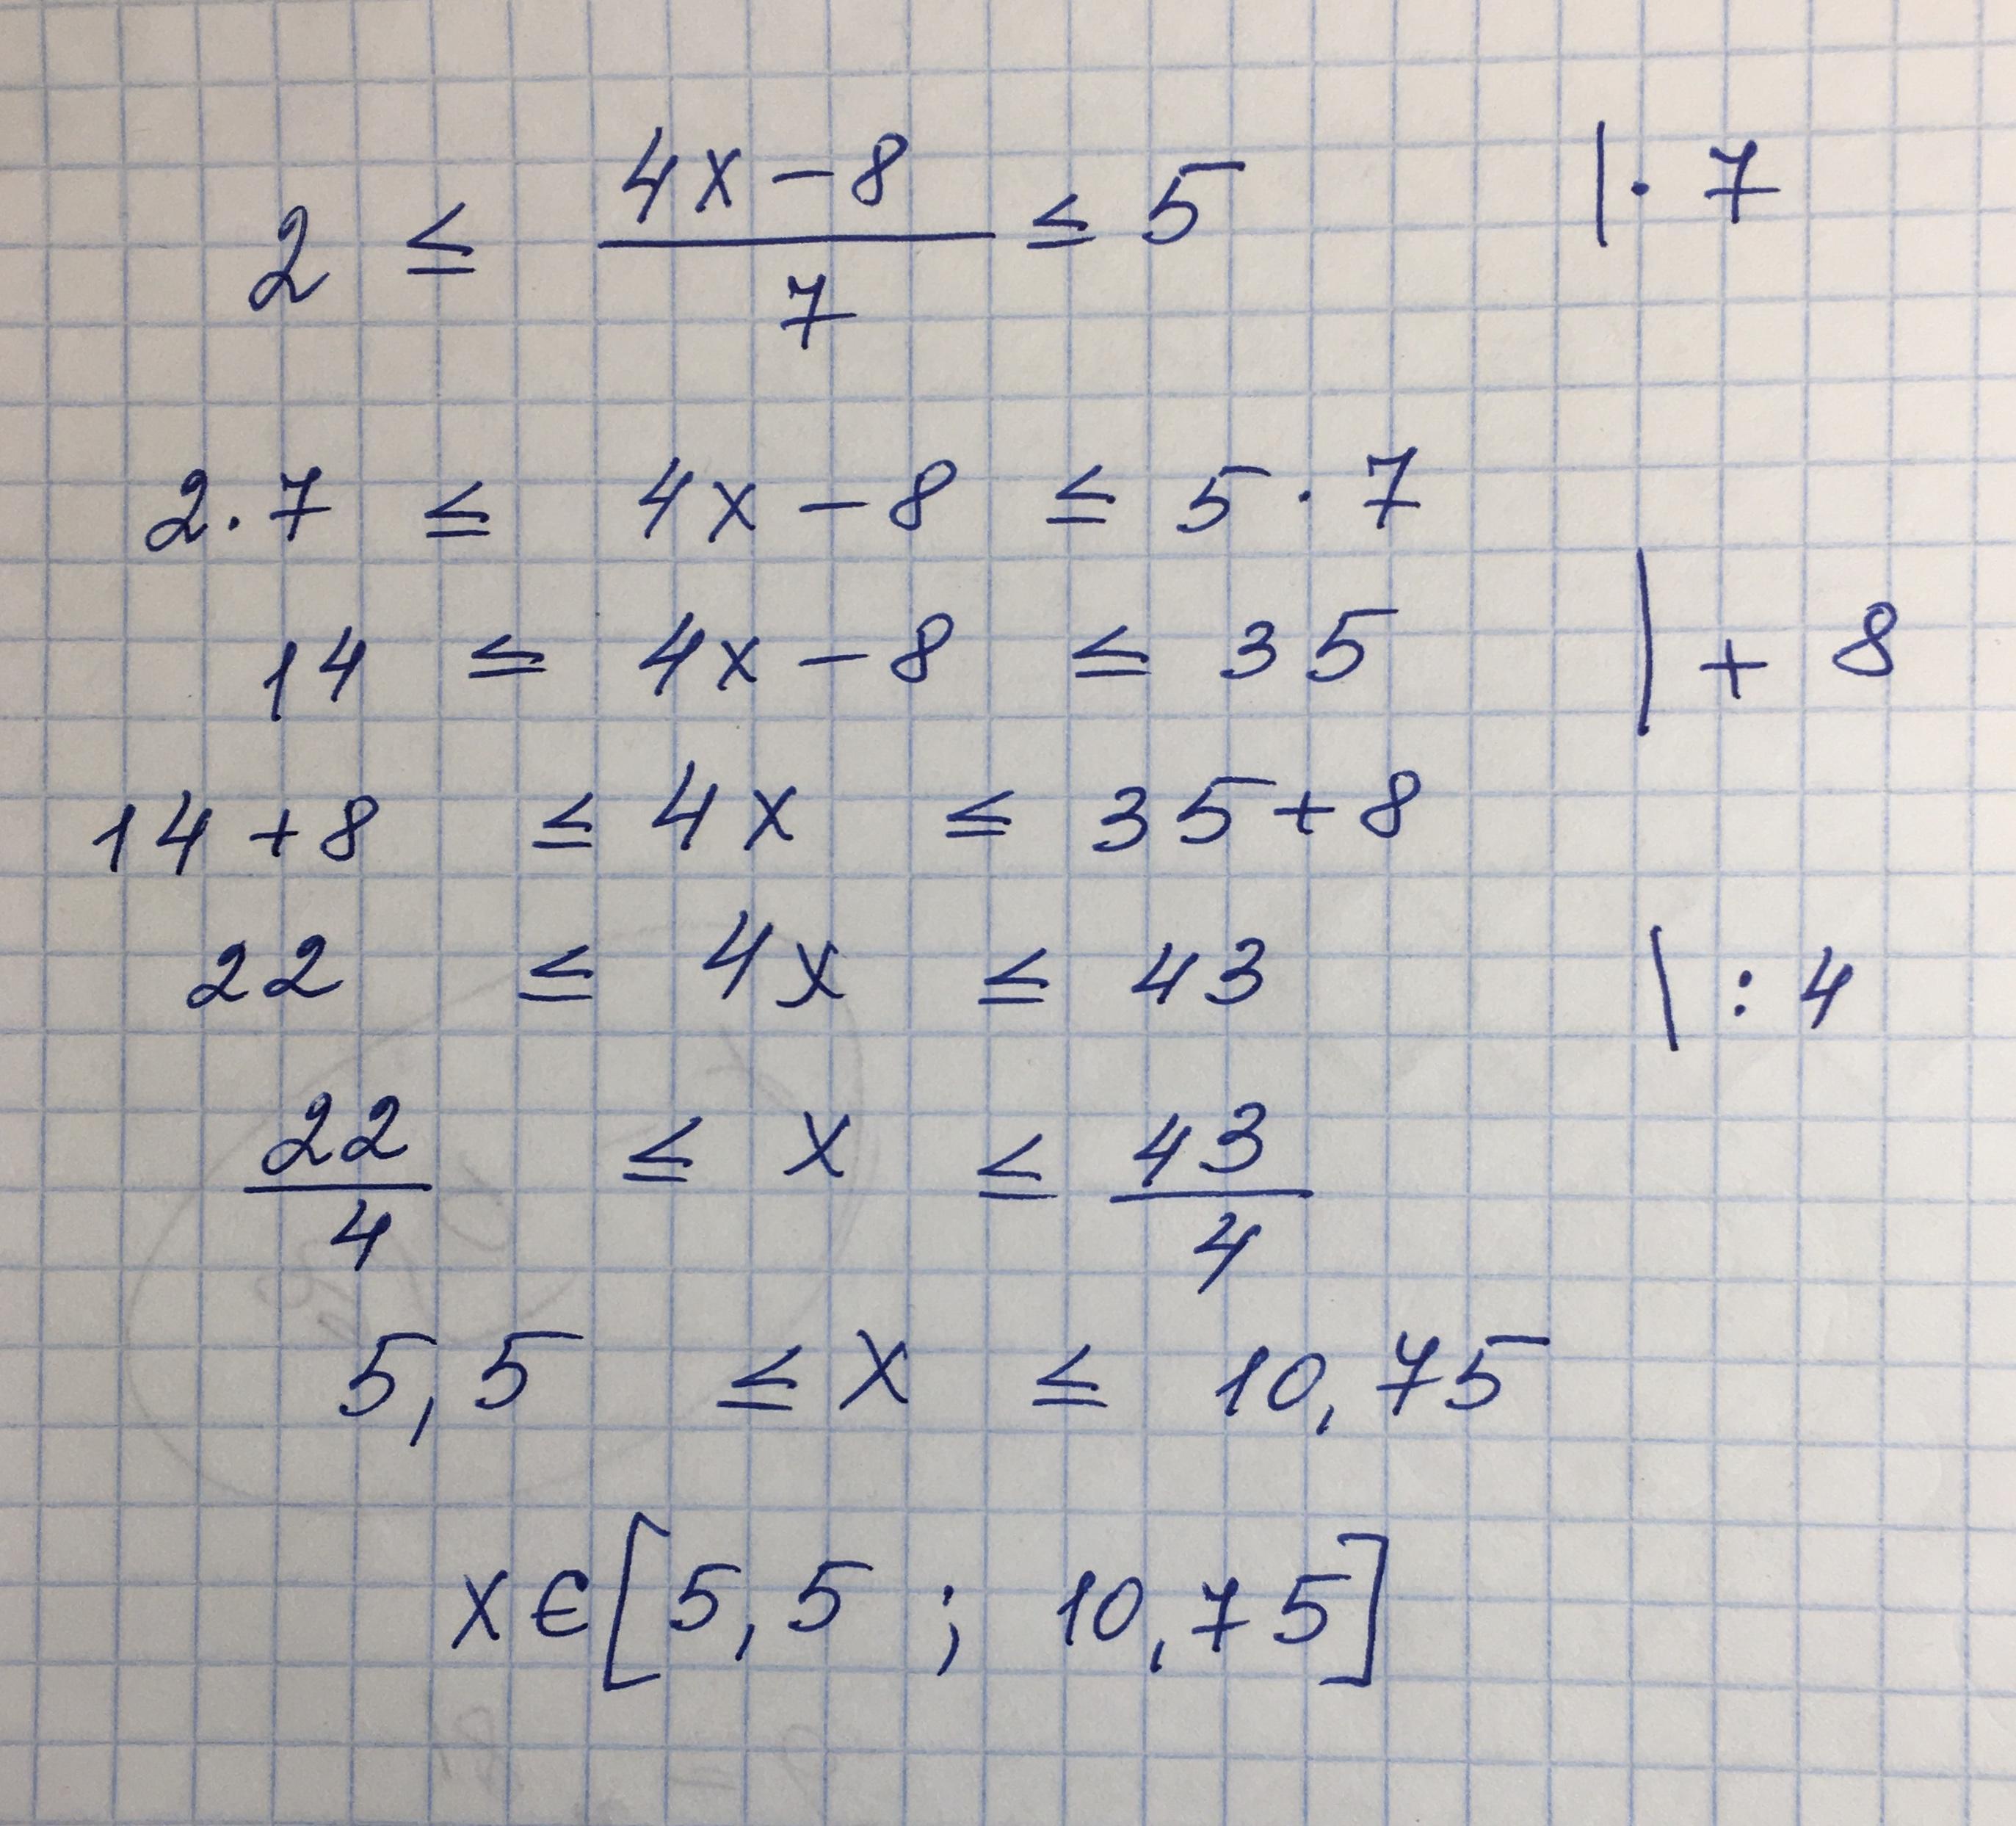 2 ≤ (4x-8)/7 ≤ 5 | · 7
2·7 ≤ 4x-8 ≤ 5·7
14 ≤ 4x-8 ≤ 35 | + 8
14+8 ≤ 4x ≤ 35+8
22 ≤ 4x ≤ 43 | : 4
22/4 ≤ x ≤ 43/4
5,5 ≤ x ≤ 10,75
x∈[5,5 ; 10,75]